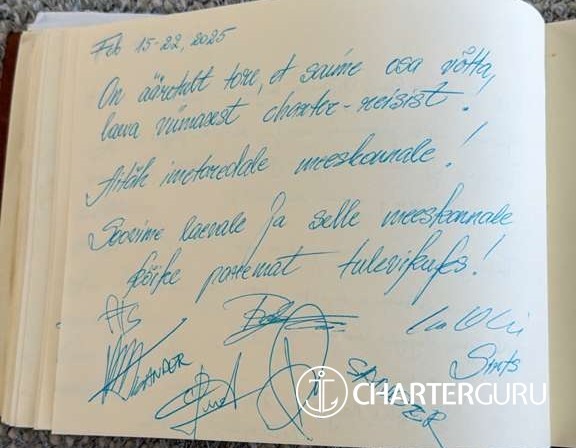 Feb 15-22, 2025
On ääretult tore, et saime osa võtta
laeva viimasest charter-reisist!
Aitäh imetoredale meeskonnale!
Soovime laevale ja selle meeskonnale
kõike paremat tulevikuks!
Sints
SANDER
CHARTERGURU